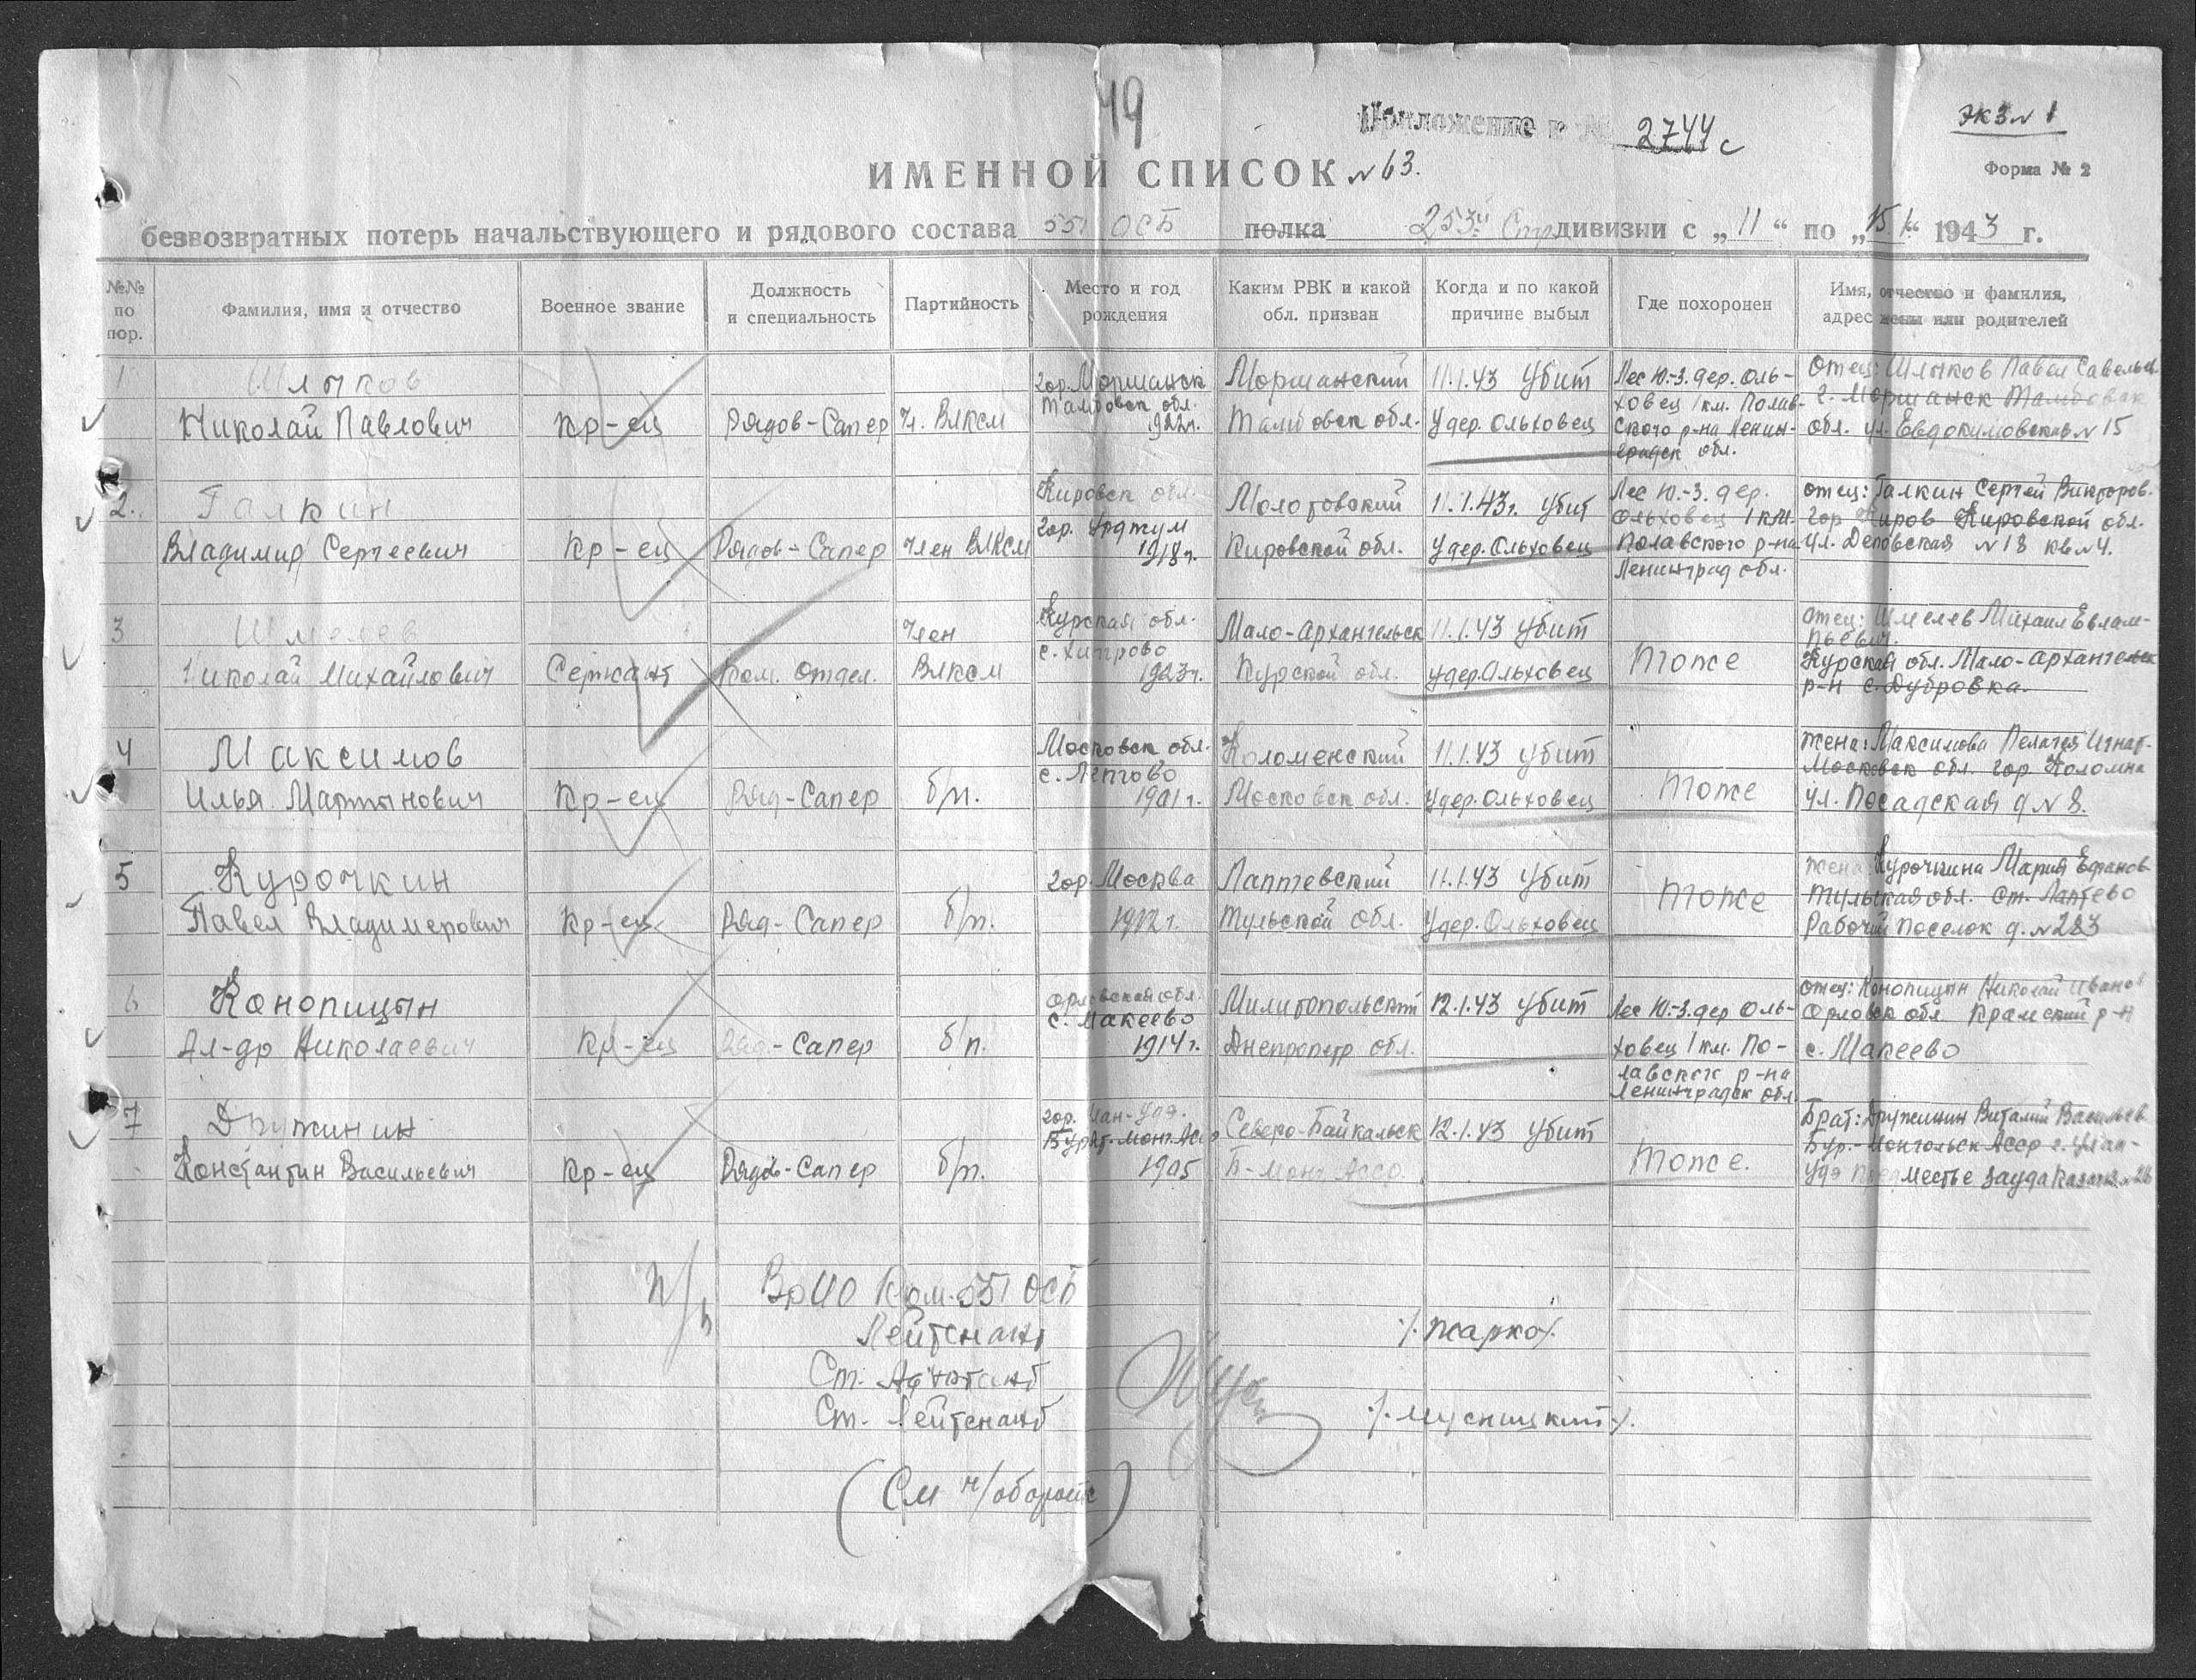 49
Приложение к № 2744с
экз N 1
Форма № 2
ИМЕННОЙ СПИСОК N 63.
безвозвратных потерь начальствующего и рядового состава 551 ОСБ полка 253й Стр дивизии с „11“ по „15.1“ 1943 г.
№№ по пор.
Фамилия, имя и отчество
Военное звание
Должность и специальность
Партийность
Место и год рождения
Каким РВК и какой обл. призван
Когда и по какой причине выбыл
Где похоронен
Имя, отчество и фамилия, адрес жены или родителей
1
Шлыков
Николай Павлович
Кр-ец
Рядов-Сапер
Чл. ВЛКСМ
гор. Моршанск
Тамбовск обл.
1922г.
Моршанский
Тамбовск обл.
11.1.43 Убит
У дер. Ольховец
Лес Ю.-З. дер. Оль-
ховец 1 км. Полав-
ского р-на Ленин-
градск обл.
Отец: Шлыков Павел Савельев
г. Моршанск Тамбовск
обл. ул. Евдокимовская N 15
2.
Галкин
Владимир Сергеевич
Кр-ец
Рядов-Сапер
Член ВЛКСМ
Кировск обл.
гор. Уржум
1918г.
Молотовский
Кировской обл.
11.1.43г. Убит
У дер. Ольховец
Лес Ю.-З. дер.
Ольховец 1 км.
Полавского р-на
Ленинград обл.
отец: Галкин Сергей Викторов.
гор. Киров Кировской обл.
ул. Деповская N 18 кв N 4.
3
Шмелев
Николай Михайлович
Сержант
Ком. отдел.
Член
ВЛКСМ
Курская обл.
с. Хитрово
1923г.
Мало-Архангельск
Курской обл.
11.1.43 Убит
У дер. Ольховец
тоже
отец: Шмелев Михаил Евлам-
пьевич.
Курская обл. Мало-Архангельск
р-н с. Дубровка.
4
Максимов
Илья Мартынович
Кр-ец
Ряд-Сапер
б/п.
Московск обл.
1901г.
Коломенский
Московск обл.
11.1.43 Убит
У дер. Ольховец
тоже
жена: Максимова Пелагея Игнат.
Московск обл. гор. Коломна
ул. Посадская д N 8.
5
Курочкин
Павел Владимерович
Кр-ец
Ряд-Сапер
б/п.
гор. Москва
Лаптевский
Тульской обл.
11.1.43 Убит
У дер. Ольховец
тоже
жена: Курочкина Мария Ефанов
Тульская обл. ст. Лаптево
Рабочий поселок д. N 283
6
Конопицын
Ал-др Николаевич
Кр-ец
Ряд-Сапер
б/п.
Орловская обл.
с. Макеево
1914г.
Милитопольский
Днепропетр обл.
12.1.43 Убит
Лес Ю.-З. дер Оль-
ховец 1 км. По-
лавском р-на
Ленинградск обл
отец: Конопицын Николай Иванов
Орловск обл. Крамской р-н
с. Макеево
7
Дружинин
Константин Васильевич
Кр-ец
Рядов-Сапер
б/п.
гор. Улан-Удэ.
Бурят.-Монг. АССР
1905
Северо-Байкальск
Б-Монг. АССР.
12.1.43 Убит
тоже.
Брат: Дружинин Виталий Васильев
Бур.-Монгольск АССР г. Улан-
Удэ Предместье
п/п
ВРИО Ком. 551 ОСБ
Лейтенант
/Жарко/.
Ст. Адъютант
Ст. Лейтенант
/Мусницкий/.
(См н/обороте)